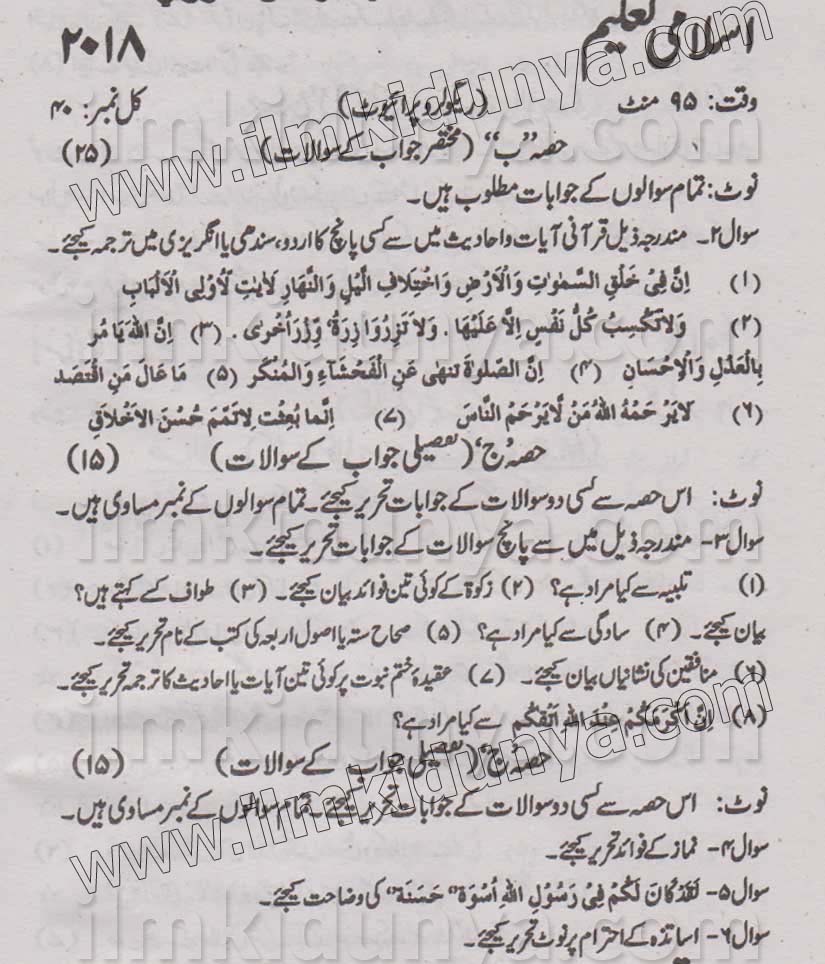 اسلامی تعلیم ۲۰۱۸
وقت: ۹۵ منٹ (ریگولر و پرائیویٹ) کل نمبر: ۴۰
حصہ ”ب“ (مختصر جواب کے سوالات) (۲۵)
نوٹ: تمام سوالوں کے جوابات مطلوب ہیں۔
سوال ۲۔ مندرجہ ذیل قرآنی آیات و احادیث میں سے کسی پانچ کا اردو، سندھی یا انگریزی میں ترجمہ کیجئے۔
(۱) اِنَّ فِیْ خَلْقِ السَّمٰوٰتِ وَالْاَرْضِ وَاخْتِلَافِ الَّیْلِ وَالنَّهَارِ لَاٰیٰتٍ لِّاُولِی الْاَلْبَابِ
(۲) وَلَا تَکْسِبُ کُلُّ نَفْسٍ اِلَّا عَلَیْهَا . وَلَا تَزِرُ وَازِرَةٌ وِّزْرَ اُخْرٰی . (۳) اِنَّ اللّٰهَ یَا مُر
بِالْعَدْلِ وَالْاِحْسَانِ (۴) اِنَّ الصَّلٰوةَ تَنْهٰی عَنِ الْفَحْشَآءِ وَالْمُنْکَر (۵) مَا عَالَ مَنِ اقْتَصَدَ
(۶) لَا یَرْحَمُهُ اللّٰهُ مَنْ لَّا یَرْحَمُ النَّاسَ (۷) اِنَّما بُعِثْت لِاتَمِّمَ حُسْنَ الْاَخْلَاقِ
حصہ ’ج‘ (تفصیلی جواب کے سوالات) (۱۵)
نوٹ: اس حصہ سے کسی دو سوالات کے جوابات تحریر کیجئے۔ تمام سوالوں کے نمبر مساوی ہیں۔
سوال ۳۔ مندرجہ ذیل میں سے پانچ سوالات کے جوابات تحریر کیجئے۔
(۱) تلبیہ سے کیا مراد ہے؟ (۲) زکوٰۃ کے کوئی تین فوائد بیان کیجئے۔ (۳) طواف کسے کہتے ہیں؟
بیان کیجئے۔ (۴) سادگی سے کیا مراد ہے؟ (۵) صحاح ستہ یا اصول اربعہ کی کتب کے نام تحریر کیجئے۔
(۶) منافقین کی نشانیاں بیان کیجئے۔ (۷) عقیدۂ ختم نبوت پر کوئی تین آیات یا احادیث کا ترجمہ تحریر کیجئے۔
(۸) اِنَّ اَکْرَمَکُمْ عِنْدَ اللّٰهِ اَتْقٰکُم سے کیا مراد ہے؟
حصہ ’ج‘ (تفصیلی جواب کے سوالات) (۱۵)
نوٹ: اس حصہ سے کسی دو سوالات کے جوابات تحریر کیجئے۔ تمام سوالوں کے نمبر مساوی ہیں۔
سوال ۴۔ نماز کے فوائد تحریر کیجئے۔
سوال ۵۔ لَقَدْ کَانَ لَکُمْ فِیْ رَسُوْلِ اللّٰهِ اُسْوَةٌ حَسَنَةٌ کی وضاحت کیجئے۔
سوال ۶۔ اساتذہ کے احترام پر نوٹ تحریر کیجئے۔
www.ilmkidunya.com
www.ilmkidunya.com
ilmkidunya.com
ilmkidunya.com
ilmkidunya.com
ilmkidunya.com
ilmkidunya.com